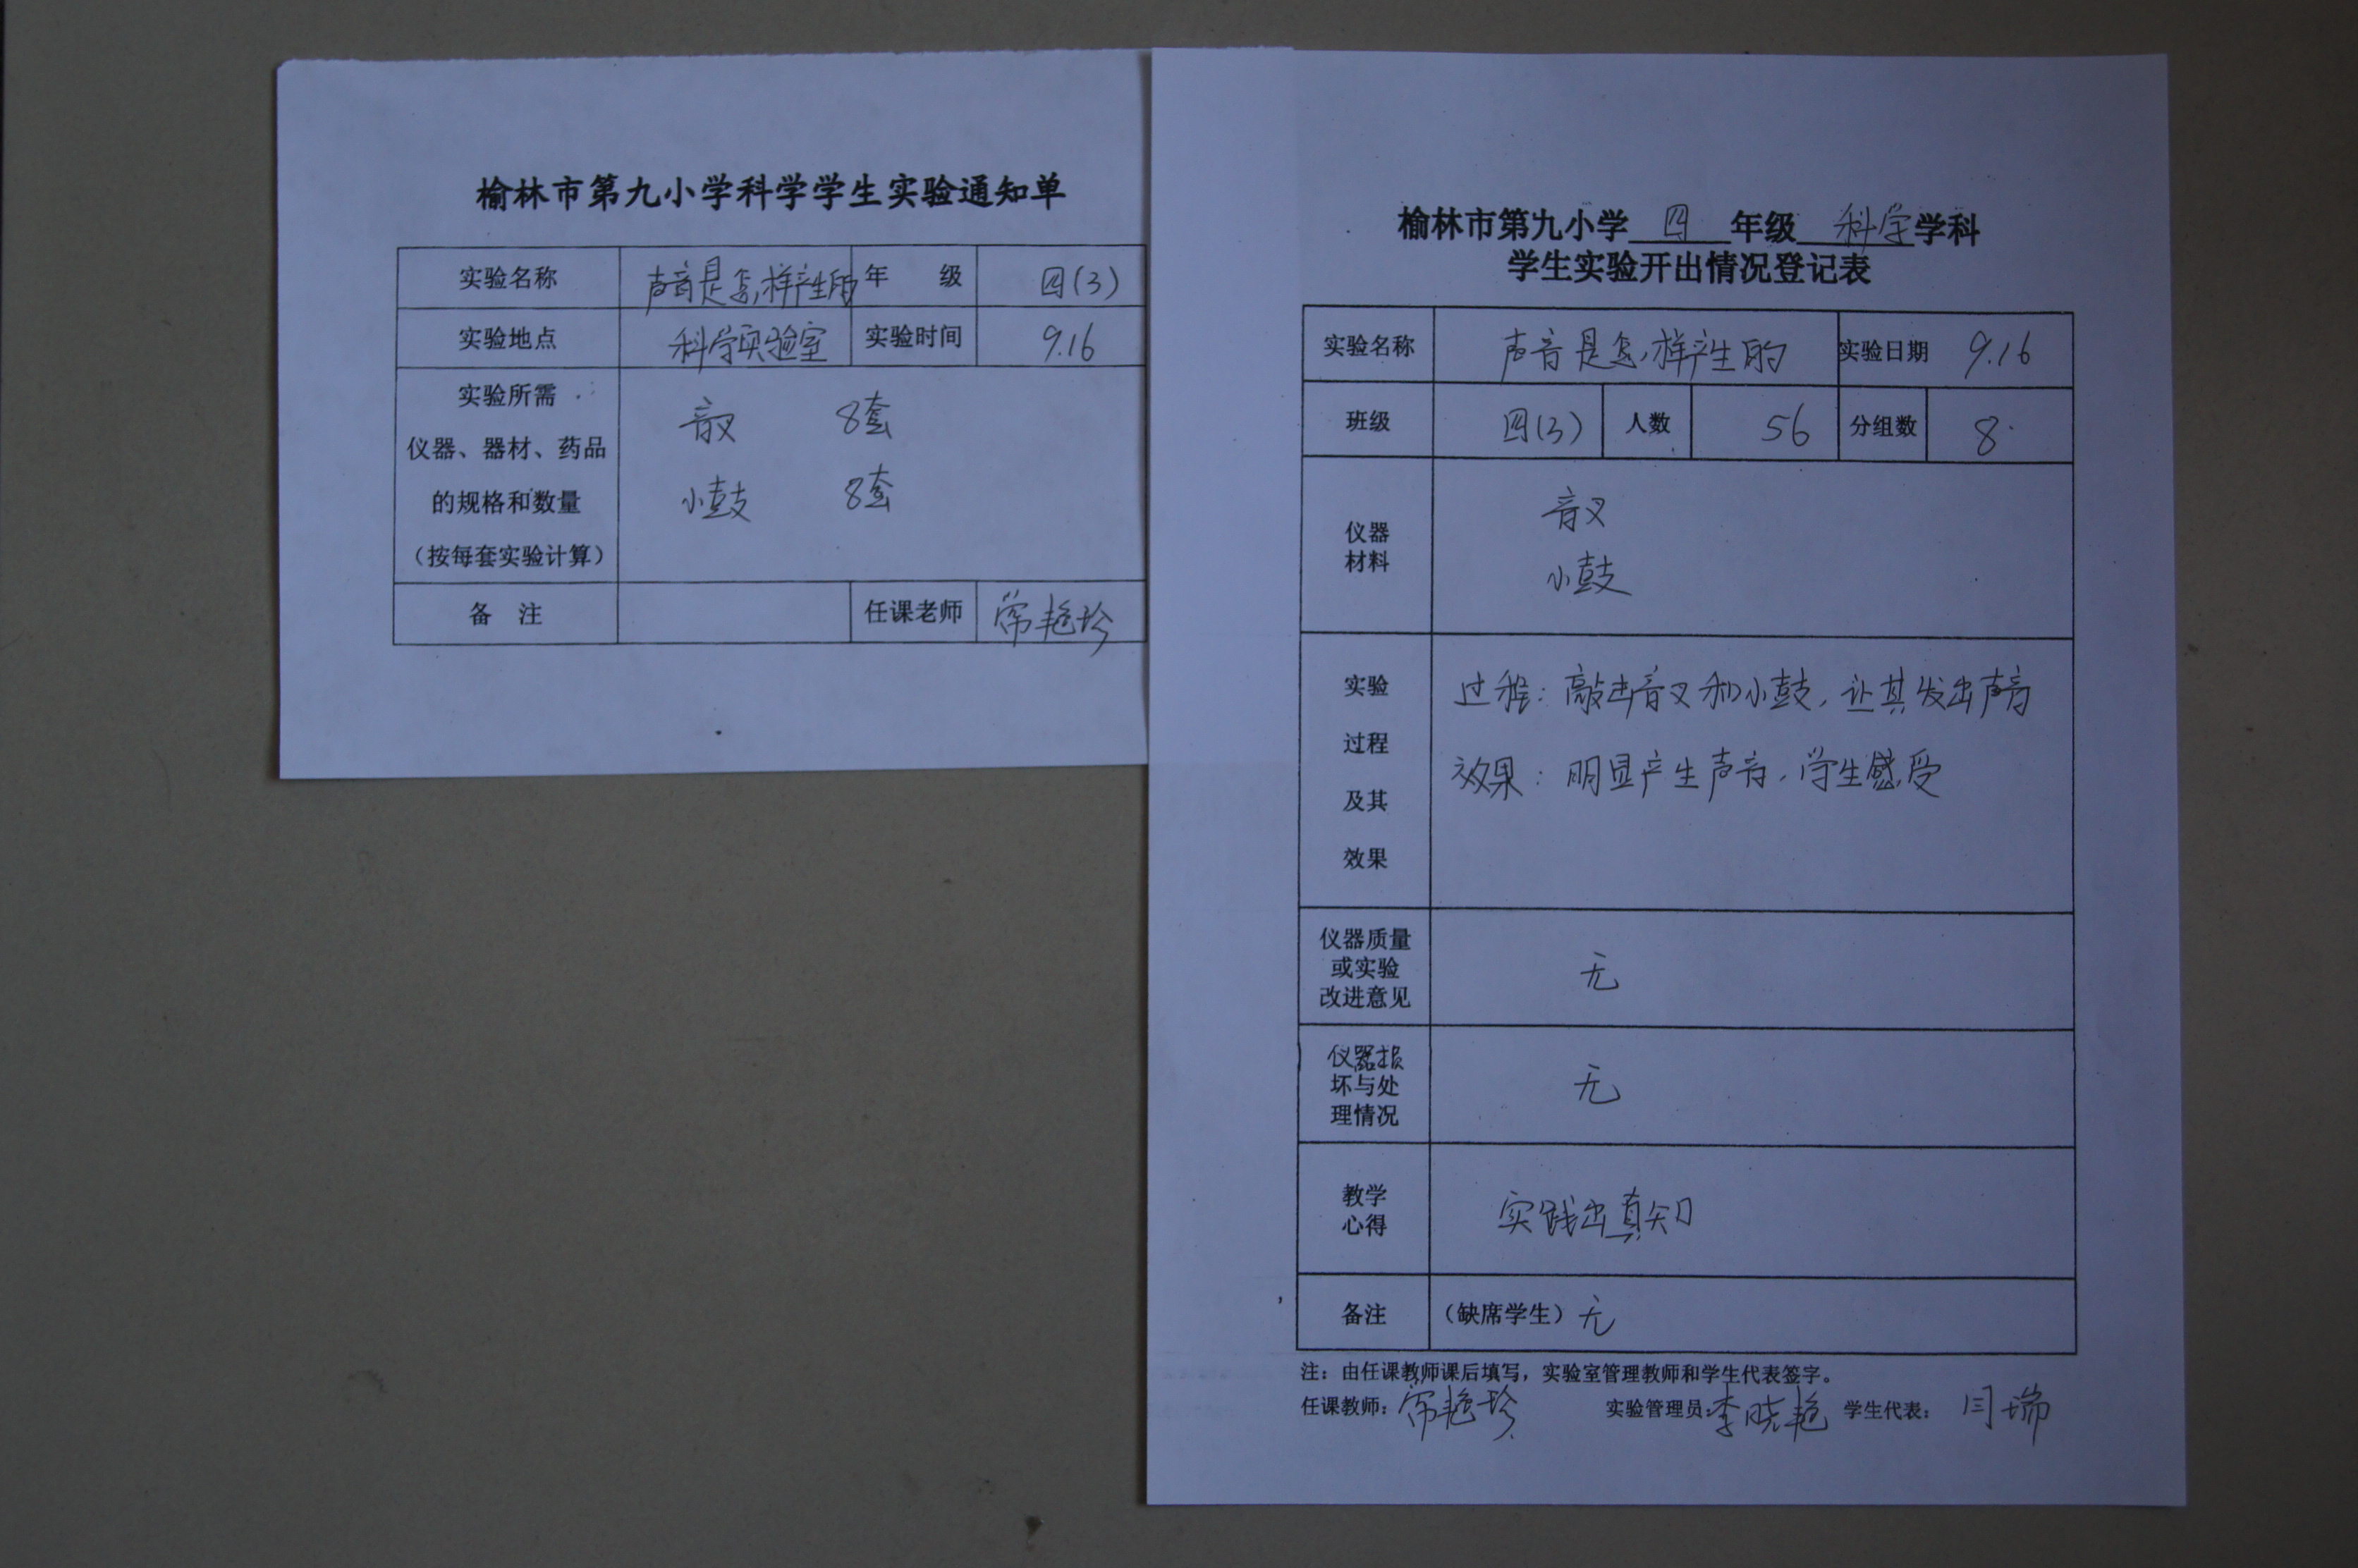 榆林市第九小学科学学生实验通知单
实验名称 声音是怎样产生的 年 级 四(3)
实验地点 科学实验室 实验时间 9.16
实验所需
仪器、器材、药品
的规格和数量
(按每套实验计算)
音叉 8套
小鼓 8套
备 注 任课老师 常艳珍
榆林市第九小学 四 年级 科学 学科
学生实验开出情况登记表
实验名称 声音是怎样产生的 实验日期 9.16
班级 四(3) 人数 56 分组数 8
仪器
材料
音叉
小鼓
实验
过程
及其
效果
过程:敲击音叉和小鼓,让其发出声音
效果:明显产生声音,学生感受
仪器质量
或实验
改进意见
无
仪器损
坏与处
理情况
无
教学
心得
实践出真知
备注 (缺席学生) 无
注:由任课教师课后填写,实验室管理教师和学生代表签字。
任课教师:常艳珍 实验管理员:李晓艳 学生代表:闫瑞